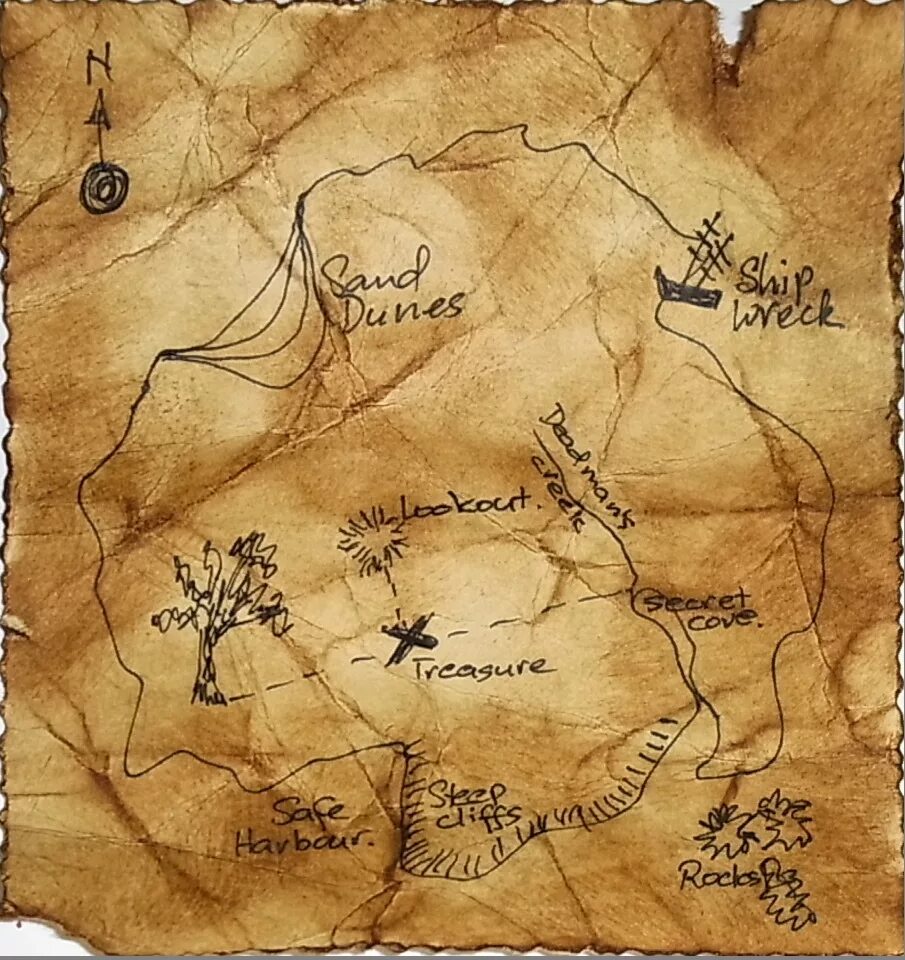 N
Sand
Dunes
Ship
Wreck
Deadmans
creek
Lookout.
Secret
cove.
Treasure
Steep
cliffs
Safe
Harbour.
Rocks